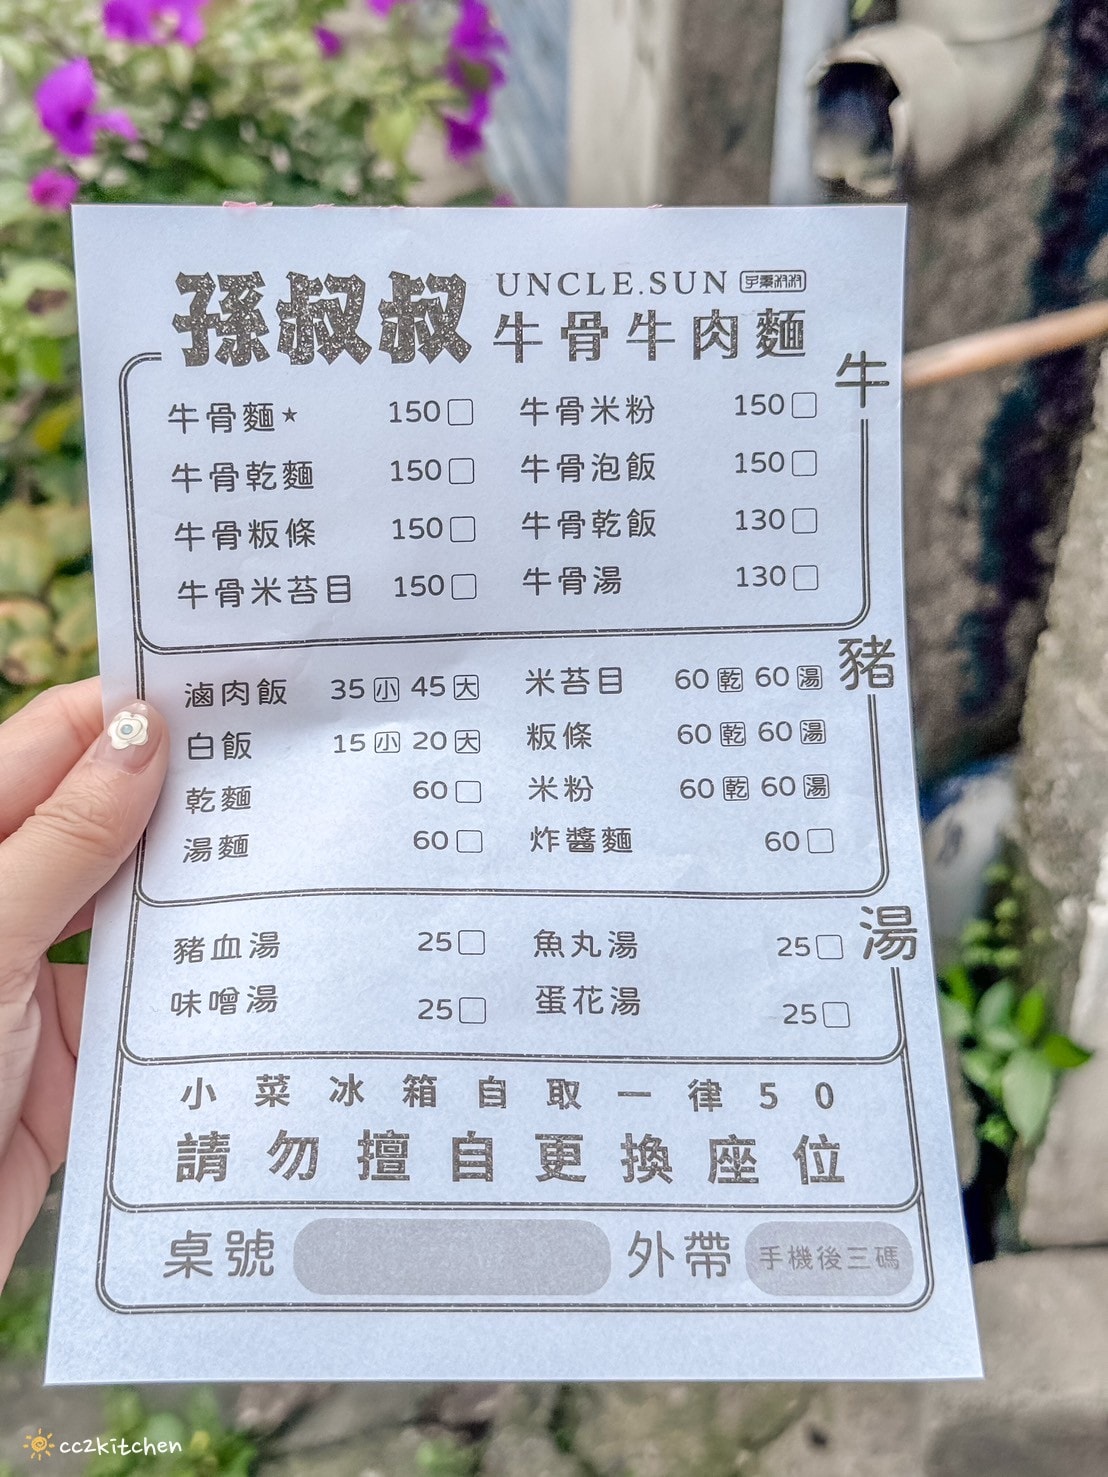 孫叔叔 UNCLE.SUN
牛骨牛肉麵
牛
牛骨麵★ 150 牛骨米粉 150
牛骨乾麵 150 牛骨泡飯 150
牛骨粄條 150 牛骨乾飯 130
牛骨米苔目 150 牛骨湯 130
豬
滷肉飯 35小 45大 米苔目 60乾 60湯
白飯 15小 20大 粄條 60乾 60湯
乾麵 60 米粉 60乾 60湯
湯麵 60 炸醬麵 60
湯
豬血湯 25 魚丸湯 25
味噌湯 25 蛋花湯 25
小菜冰箱自取一律50
請勿擅自更換座位
桌號 外帶 手機後三碼
cc2kitchen